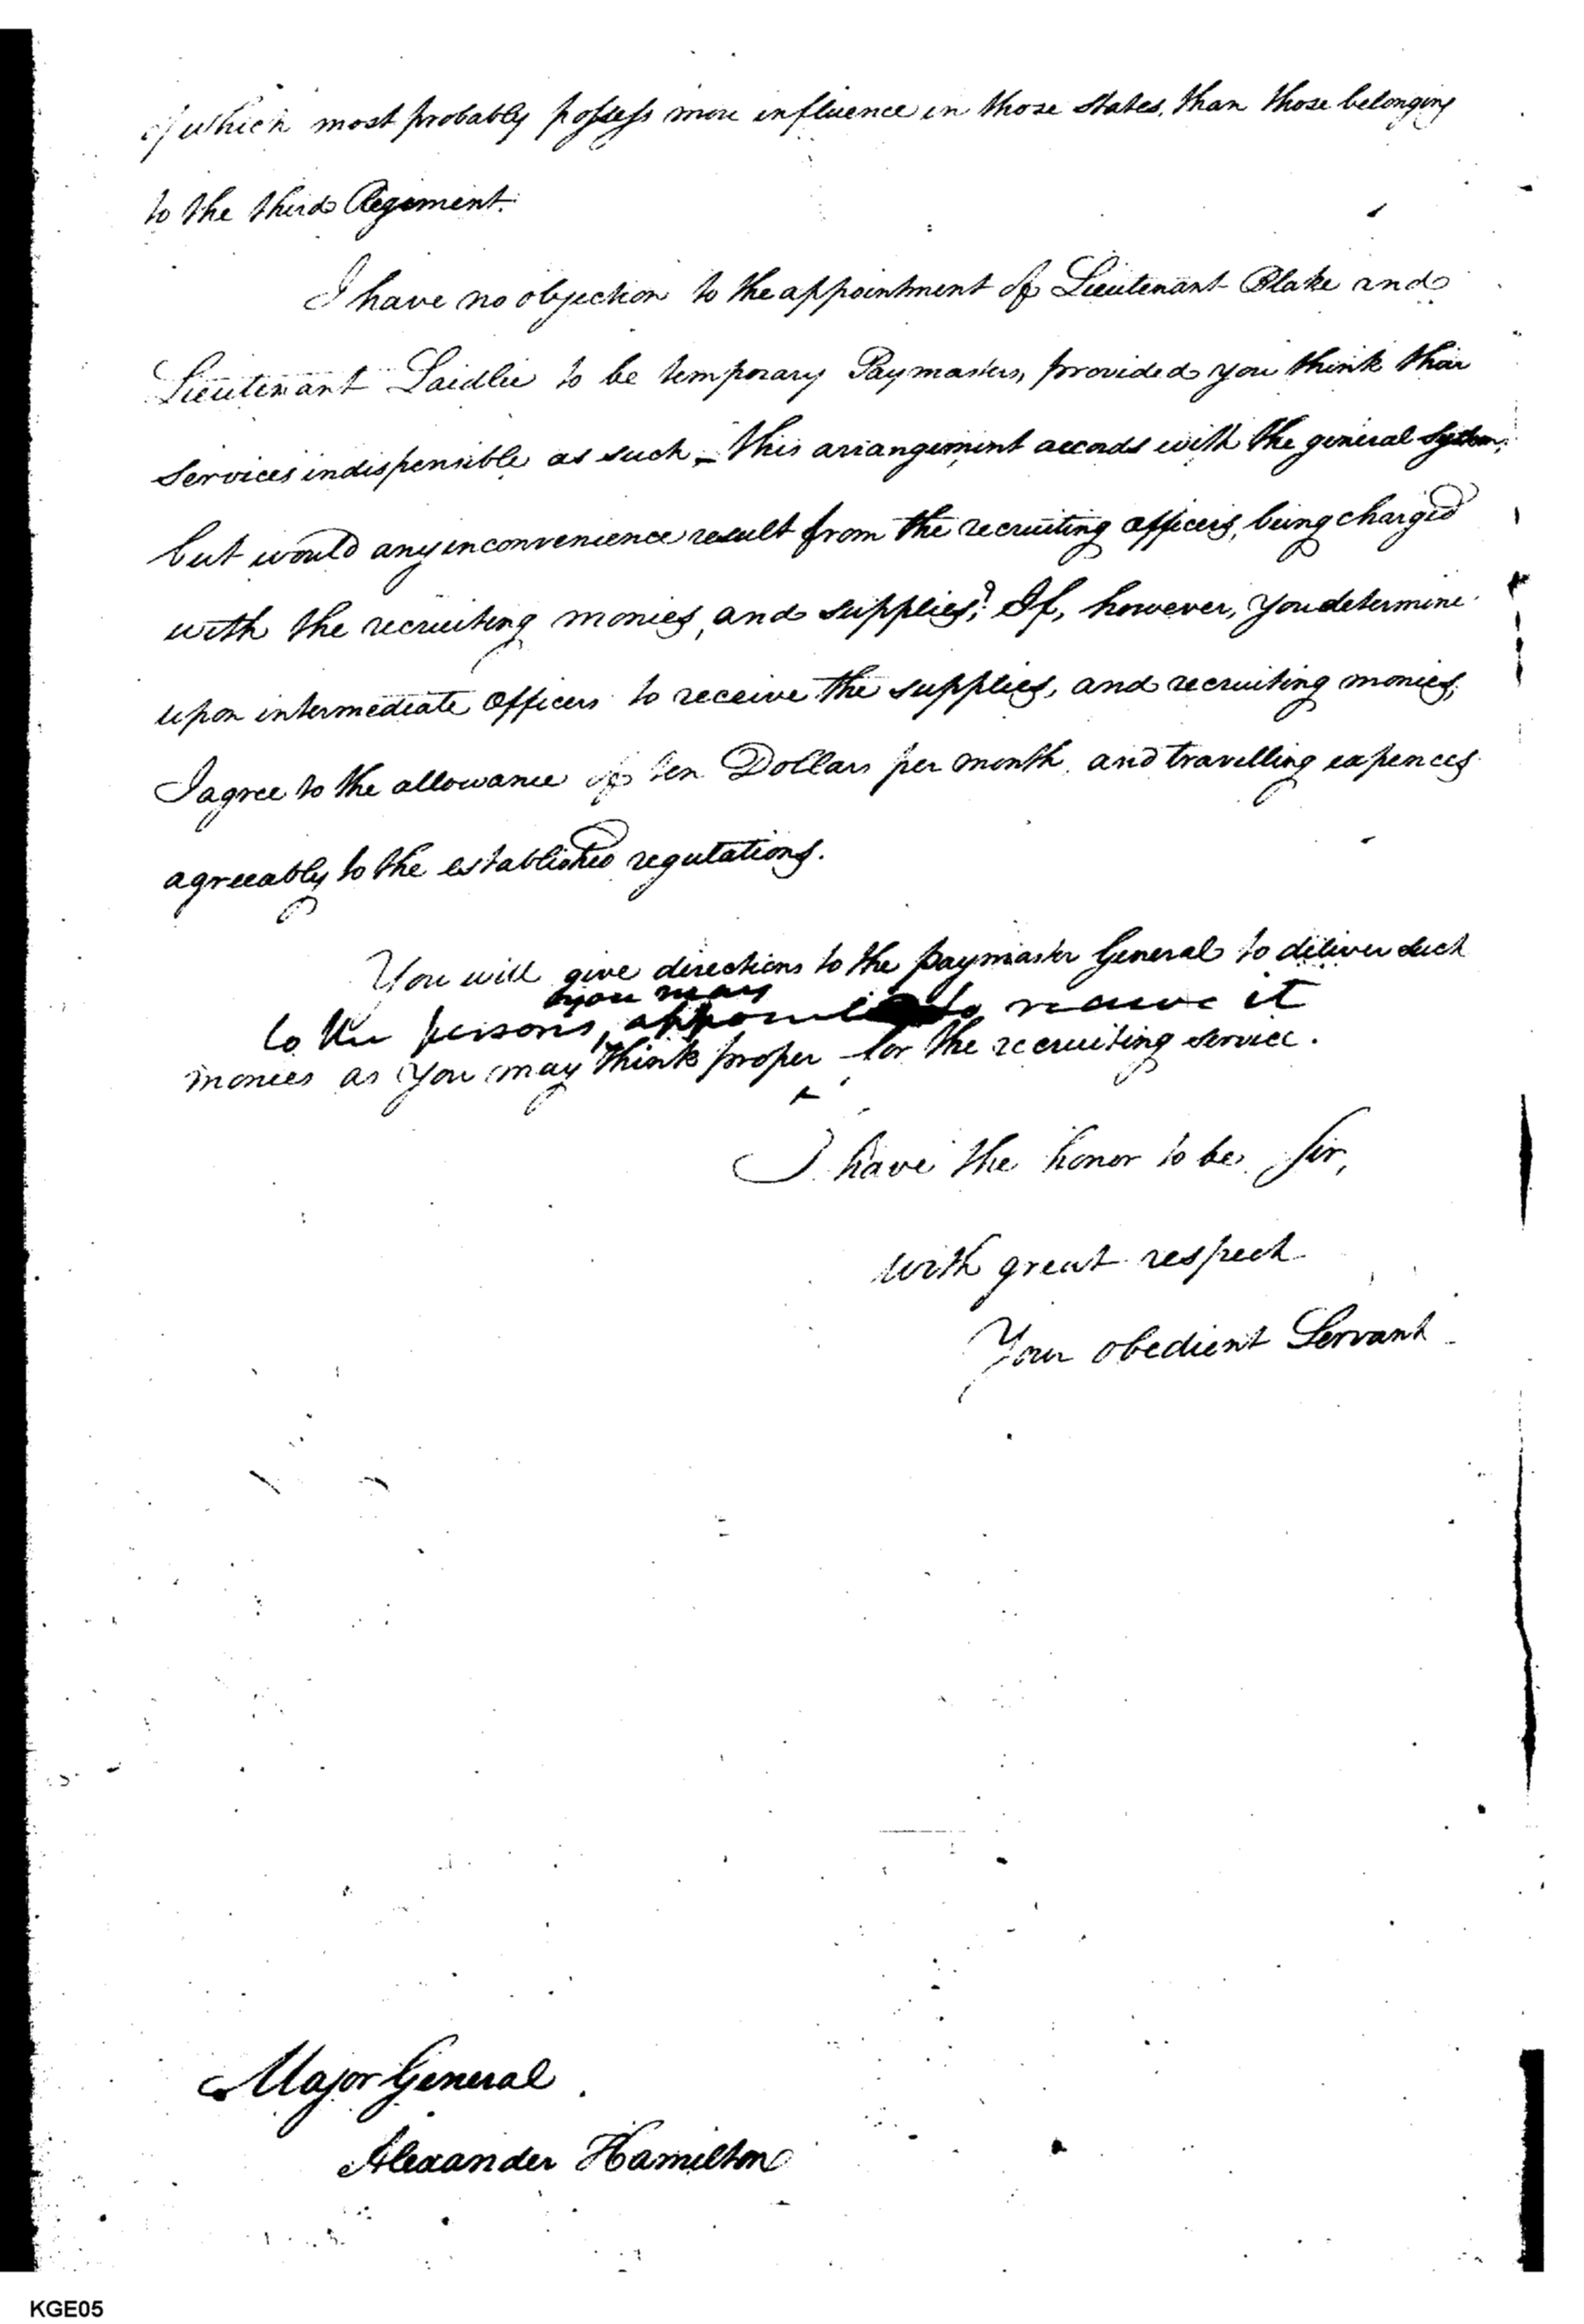 of which most probably possess more influence in those States, than those belonging
to the third Regiment.
I have no objection to the appointment of Lieutenant Blake and
Lieutenant Laidlie to be temporary Paymasters, provided you think their
services indispensible as such – this arrangement accords with the general system,
but would any inconvenience result from the recruiting officers, being charged
with the recruiting monies, and supplies? If, however, you determine
upon intermediate Officers to receive the supplies, and recruiting monies,
I agree to the allowance of ten Dollars per month, and travelling expences
agreeably to the established regulations.
You will give directions to the paymaster General to deliver such
you may
to the persons, appoint to receive it
monies as you may think proper for the recruiting service.
I have the honor to be, Sir,
with great respect
Your obedient Servant
Major General
Alexander Hamilton
KGE05